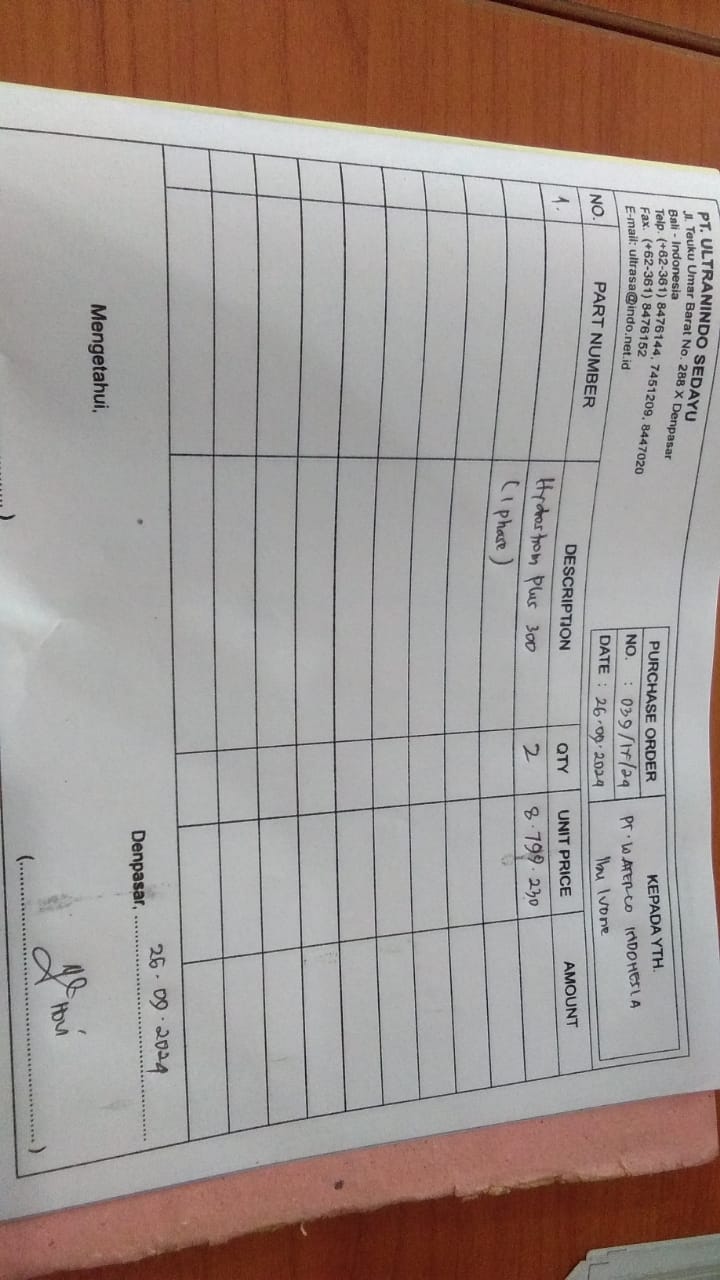 PT. ULTRANINDO SEDAYU
Jl. Teuku Umar Barat No. 288 X Denpasar
Bali - Indonesia
Telp. (+62-361) 8476144, 7451209, 8447020
Fax. (+62-361) 8476152
E-mail: ultrasa@indo.net.id
PURCHASE ORDER
NO. : 039/
DATE : 26.09.2024
KEPADA YTH.
PT. WATERCO INDONESIA
Ibu Ivone
NO. PART NUMBER DESCRIPTION QTY UNIT PRICE AMOUNT
1. Hydrostrom plus 300 2 8.799.230
(1 phase)
Mengetahui,
Denpasar, 26.09.2024
(....................)